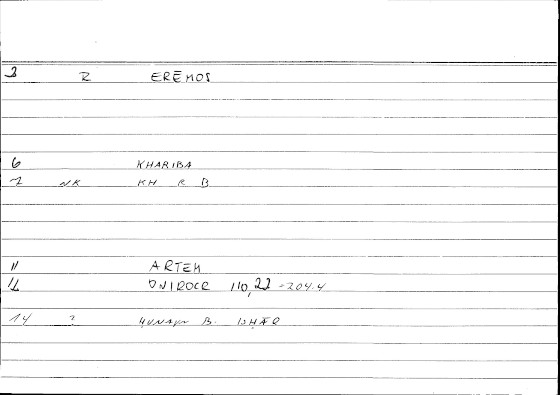 3 R ERĒMOS
6 KHARIBA
7 NK KH R B
11 ARTEM
12 ONIROCR 110,22 - 204.4
14 ? ḤUNAYN B. ISḤĀQ